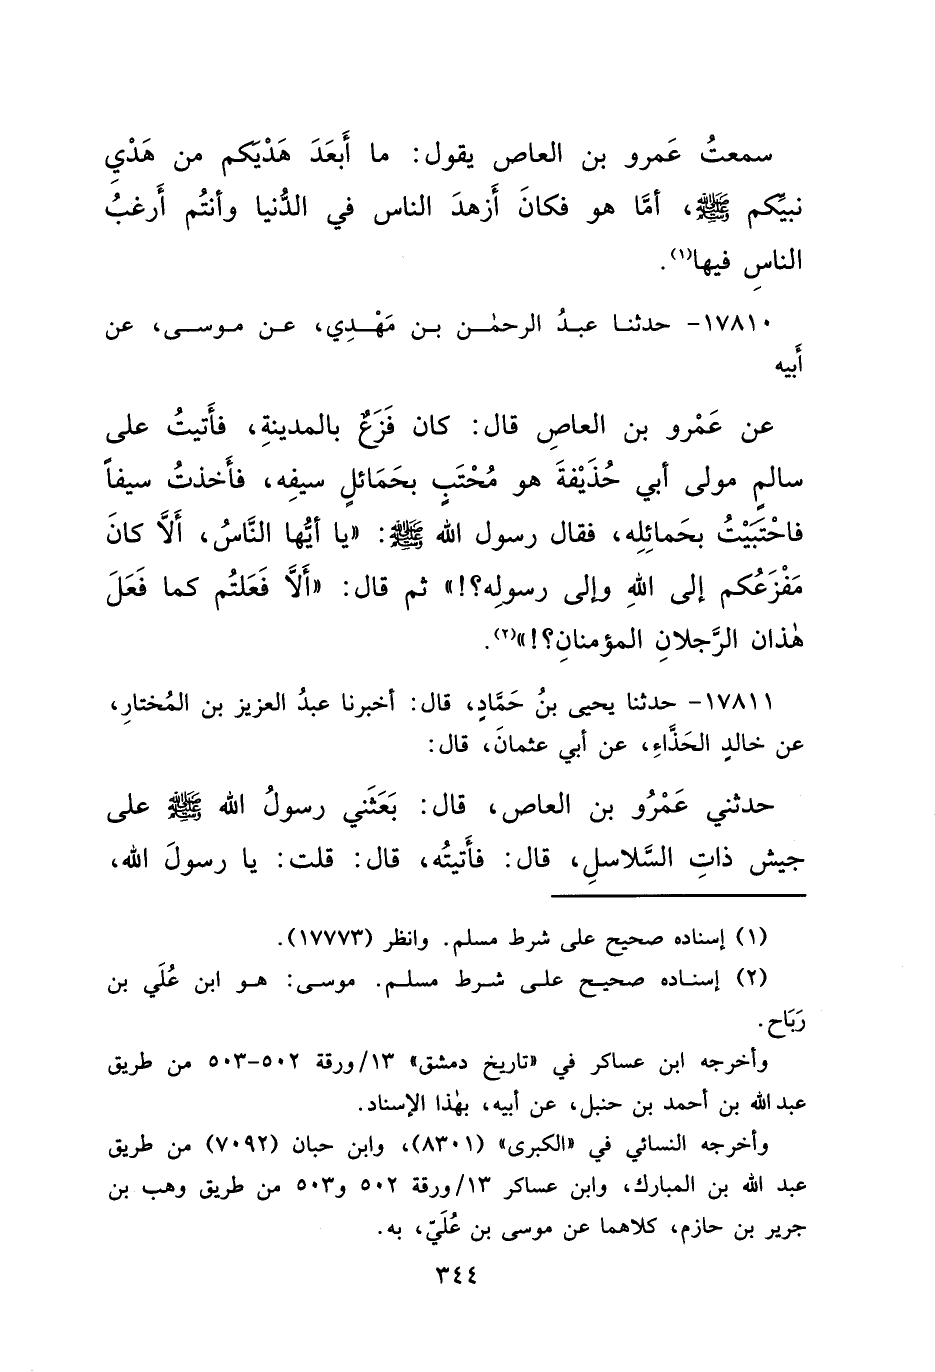 سمعتُ عَمرو بن العاص يقول: ما أَبعَدَ هَدْيَكم من هَدْيِ
نبيِّكم ﷺ، أمَّا هو فكانَ أَزهدَ الناس في الدُّنيا وأنتُم أَرغبُ
الناسِ فيها(١).
١٧٨١٠- حدثنا عبدُ الرحمٰن بن مَهْدِي، عن موسى، عن
أَبيه
عن عَمْرو بن العاصِ قال: كان فَزَعٌ بالمدينةِ، فأَتيتُ على
سالمٍ مولى أبي حُذَيْفةَ هو مُحْتَبٍ بحَمَائلِ سيفِه، فأَخذتُ سيفاً
فاحْتَبَيْتُ بحَمائِلِه، فقال رسول الله ﷺ: «يا أيُّها النَّاسُ، أَلَّا كانَ
مَفْزَعُكم إلى اللهِ وإلى رسولِه؟!» ثم قال: «أَلَّا فَعَلتُم كما فَعَلَ
هٰذان الرَّجلانِ المؤمنانِ؟!»(٢).
١٧٨١١- حدثنا يحيى بنُ حَمَّادٍ، قال: أخبرنا عبدُ العزيز بن المُختارِ،
عن خالدٍ الحَذَّاءِ، عن أبي عثمانَ، قال:
حدثني عَمْرُو بن العاص، قال: بَعَثَني رسولُ الله ﷺ على
جيش ذاتِ السَّلاسلِ، قال: فأَتيتُه، قال: قلت: يا رسولَ الله،
(١) إسناده صحيح على شرط مسلم. وانظر (١٧٧٧٣).
(٢) إسناده صحيح على شرط مسلم. موسى: هو ابن عُلَي بن
رَبَاح.
وأخرجه ابن عساكر في «تاريخ دمشق» ١٣/ورقة ٥٠٢-٥٠٣ من طريق
عبد الله بن أحمد بن حنبل، عن أبيه، بهٰذا الإسناد.
وأخرجه النسائي في «الكبرى» (٨٣٠١)، وابن حبان (٧٠٩٢) من طريق
عبد الله بن المبارك، وابن عساكر ١٣/ورقة ٥٠٢ و٥٠٣ من طريق وهب بن
جرير بن حازم، كلاهما عن موسى بن عُلَيّ، به.
٣٤٤